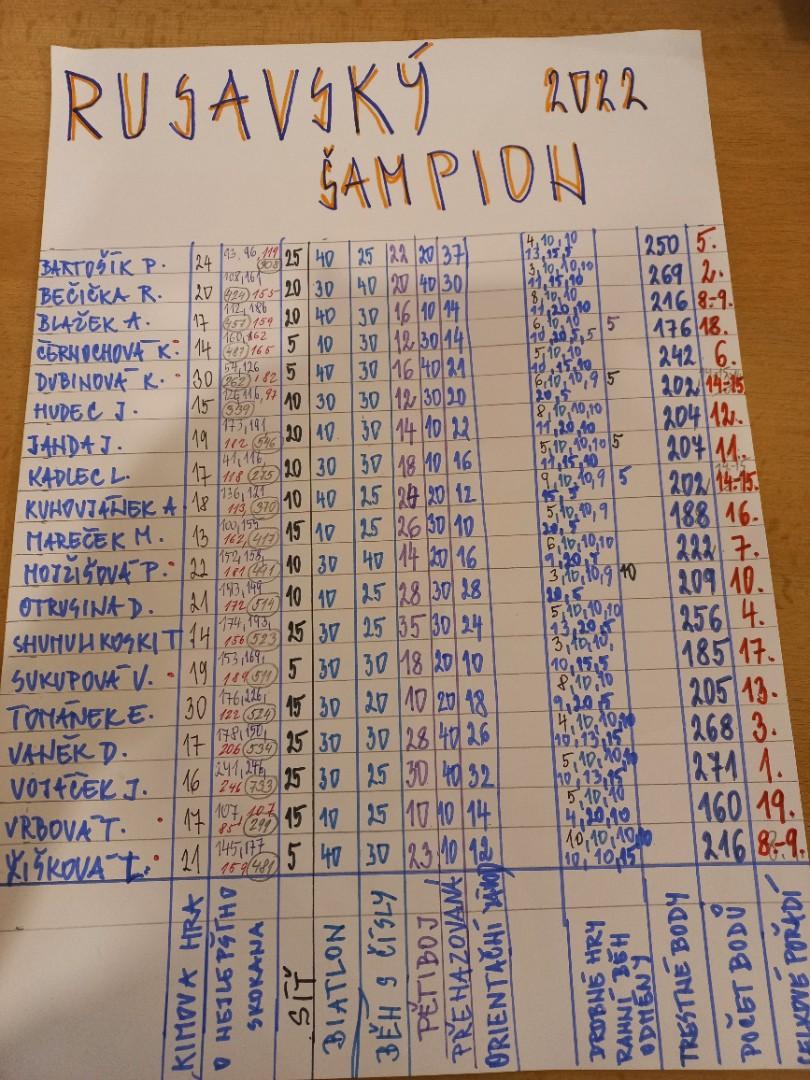 RUSAVSKÝ 2022
ŠAMPION
BARTOŠÍK P. 24 93, 96, 119 308 25 40 25 22 20 37 4, 10, 10 13, 15, 5 250 5.
BEČIČKA R. 20 108, 161 424 155 20 30 40 20 40 30 3, 10, 10, 10 11, 15, 10 269 2.
BLAŽEK A. 17 112, 186 457 159 20 40 30 16 10 14 8, 10, 10 11, 20, 10 216 8-9.
ČERNOCHOVÁ K. 14 160, 162 487 165 5 10 30 12 30 14 6, 10, 10 10, 20, 5, 5 5 176 18.
DUBINOVÁ K. 30 54, 126 262 182 5 40 30 16 40 21 5, 10, 10 10, 15, 10 242 6.
HUDEC J. 15 126, 116, 97 339 10 30 30 12 30 20 6, 10, 10, 9 20, 5 5 202 14-15.
JANDA J. 19 173, 191 182 546 20 10 30 14 10 22 8, 10, 10, 10 11, 20, 10 204 12.
KADLEC L. 17 41, 116 118 275 20 30 30 18 10 16 5, 10, 10, 10 11, 15, 10 5 207 11.
KUHOVJÁNEK A 18 136, 121 113, 370 10 40 25 24 20 12 9, 10, 10, 9 15, 5 5 202 14-15.
MAREČEK M. 13 100, 155 162, 417 15 10 25 26 30 10 5, 10, 10, 9 20, 5 188 16.
MOJŽIŠOVÁ P. 22 152, 158, 181 491 10 30 40 14 20 16 6, 10, 10, 10 9, 20, 5 222 7.
OTRUSINA D. 21 193, 149 172 514 10 10 25 28 30 28 3, 10, 10, 9 20, 5 10 209 10.
SHUMULIKOSKI T 14 174, 193, 156 523 25 30 25 35 30 24 5, 10, 10, 10 13, 20, 5 256 4.
SUKUPOVÁ V. 19 153, 169, 189 511 5 30 30 18 20 10 3, 10, 10, 10, 15, 5 185 17.
TOMÁNEK E. 30 176, 226, 122 524 15 30 20 10 20 18 8, 10, 10 9, 20, 5 205 13.
VANĚK D. 17 178, 150, 206 534 25 30 30 28 40 26 4, 10, 10, 10 10, 13, 15 268 3.
VOJÁČEK J. 16 241, 246, 246 733 25 30 25 30 40 32 5, 10, 10, 10 10, 13, 15 271 1.
VRBOVÁ T. 17 107 107 85 299 15 10 25 10 10 14 5, 10, 10 4, 20, 10 160 19.
ŽIŠKOVÁ T. 21 145, 177 159 481 5 40 30 23 10 12 10, 10, 10, 10 10, 10, 15 216 8-9.
KIMOVA HRA
O NEJLEPŠÍHO
SKOKANA
SÍŤ
BIATLON
BĚH S ČÍSLY
PĚTIBOJ
PŘEHAZOVANÁ
ORIENTAČNÍ ZÁVOD
DROBNÉ HRY
RANNÍ BĚH
ODMĚNY
TRESTNÉ BODY
POČET BODŮ
CELKOVÉ POŘADÍ